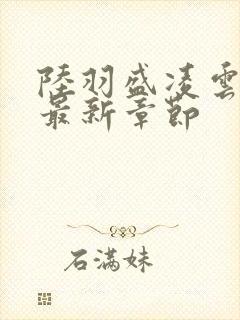 陸羽盛凌雲
最新章節
石滿妹